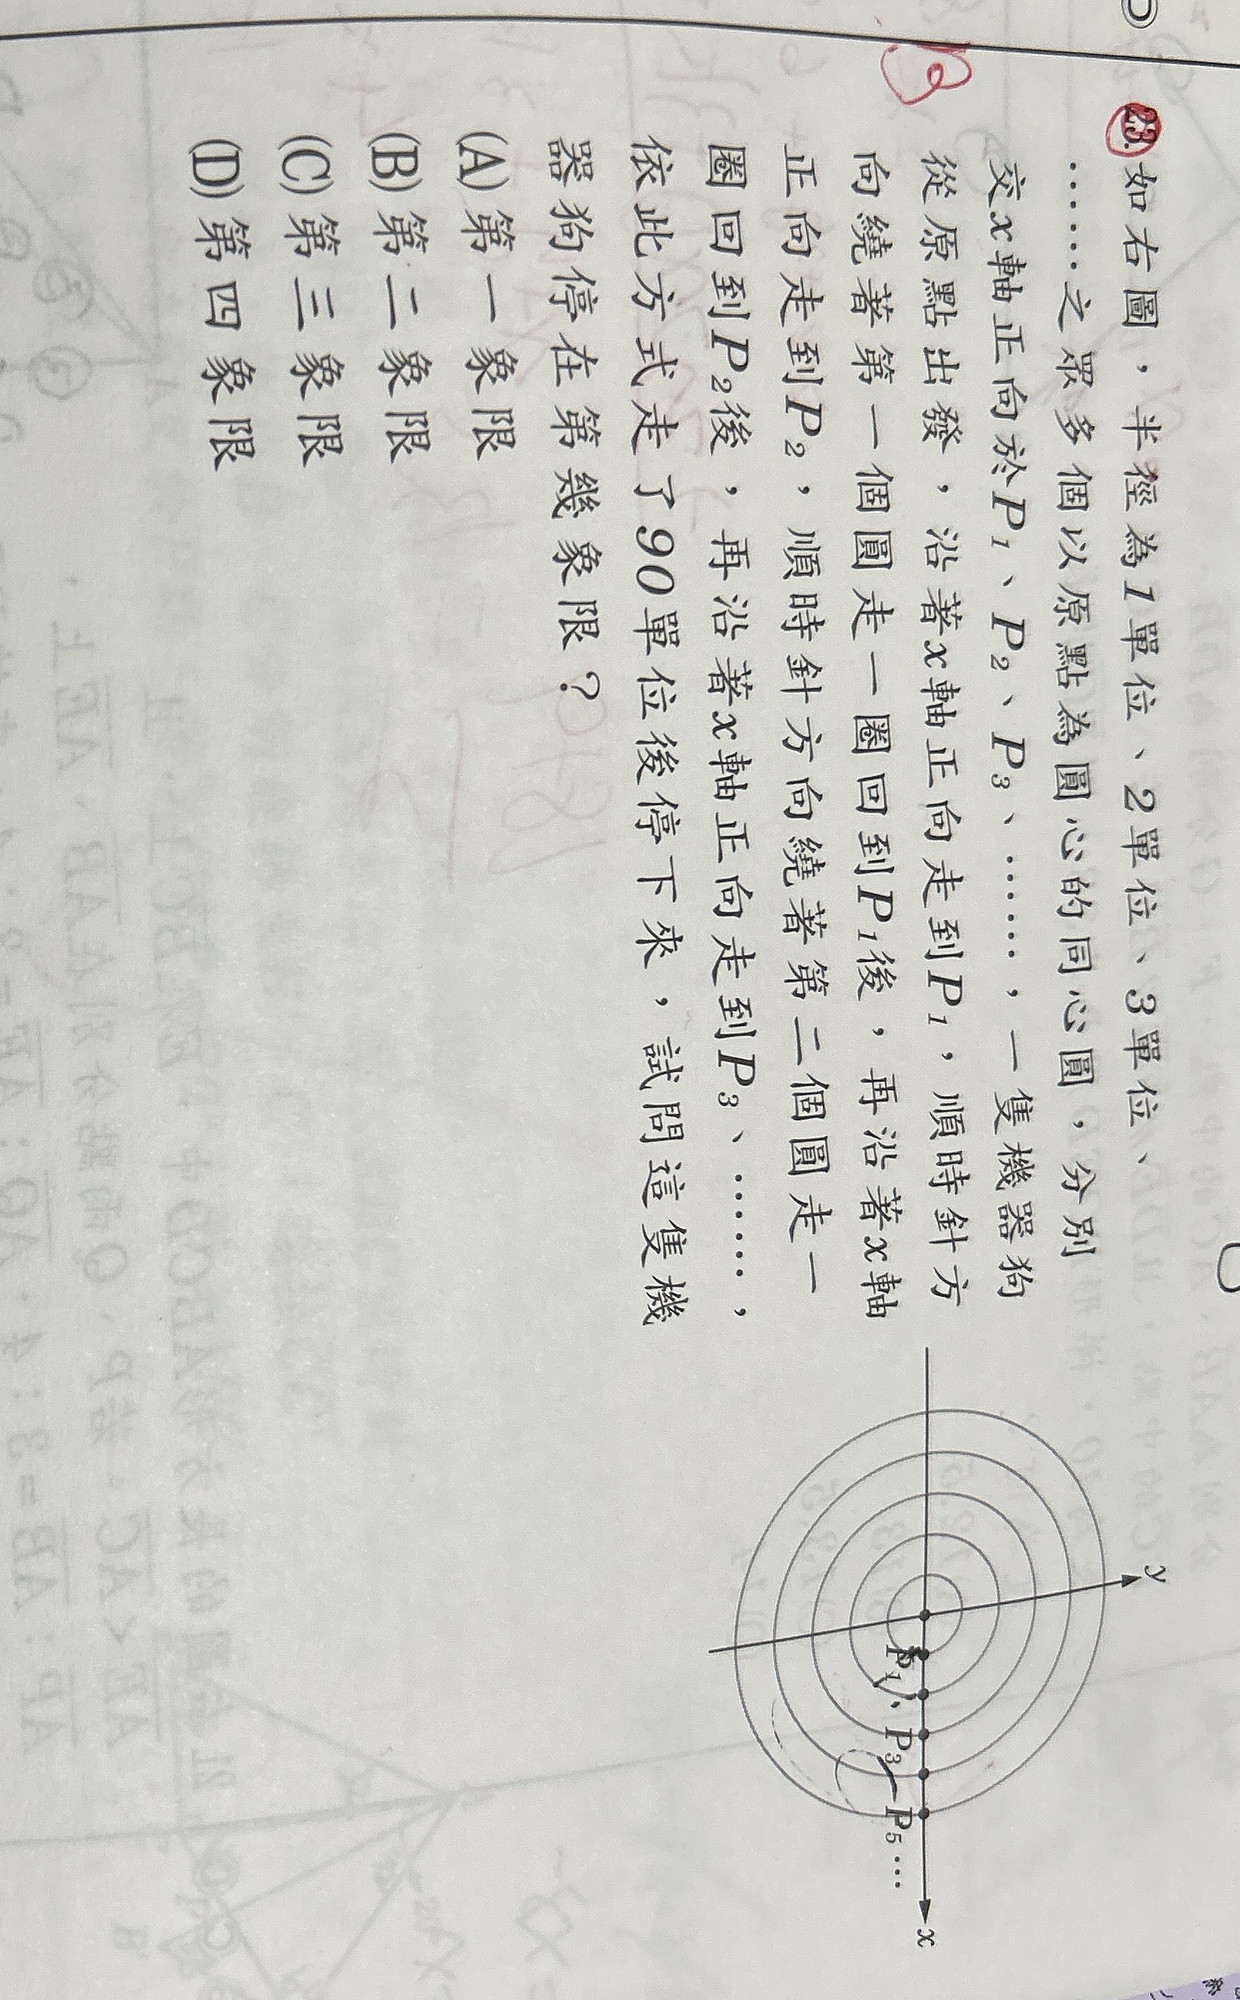 23. 如右圖，半徑為1單位、2單位、3單位、
……之眾多個以原點為圓心的同心圓，分別
交x軸正向於P₁、P₂、P₃、……，一隻機器狗
從原點出發，沿著x軸正向走到P₁，順時針方
向繞著第一個圓走一圈回到P₁後，再沿著x軸
正向走到P₂，順時針方向繞著第二個圓走一
圈回到P₂後，再沿著x軸正向走到P₃、……，
依此方式走了90單位後停下來，試問這隻機
器狗停在第幾象限？
(A)第一象限
(B)第二象限
(C)第三象限
(D)第四象限
y
P₁
P₃
P₅…
x
B